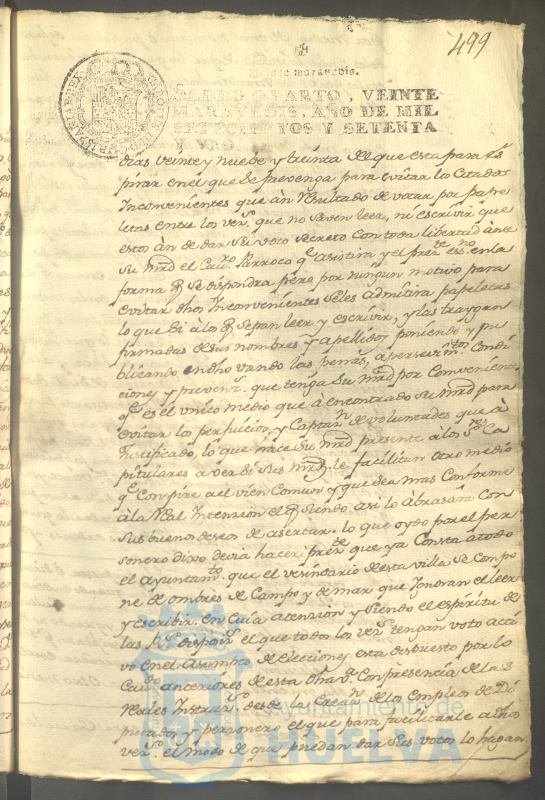 499
Veinte maravedis.
SELLO QVARTO, VEINTE
MARAVEDIS, AÑO DE MIL
SETECIENTOS Y SETENTA
Y VNO.
dias veinte y nuebe y treinta del que esta para es
pirar en el que se prevenga para evitar los Citados
Inconvenientes que àn resultado de votar por papele
letas entre los vez.s que no saven leer, ni escrivir que
estos àn de dar su voto secreto con toda libertad ante
su mrd el Cura Parroco q.e asistira y el pres.te ess.no en la
forma q. se dispondra pero por ningun motivo para
evitar dhos Inconvenientes seles admitira papeletas
lo que si à los q. sepan leer y escrivir, y las traygan
firmadas de sus nombres y apellidos poniendo y pu
blicando en dho vando las penas, apersevim.tos Condi
ciones y prevenz.s que tenga su mrd por Conveniente
q.e es el unico medio que à encontrado su mrd para
evitar los perjuicios, y Captaz.n de voluntades que à
Justificado, lo que hace su mrd presente à los S.res Ca
pitulares a ver si sus mrds. le facilitan otro medio
q.e Conspire a el vien Comun y que sea mas Conforme
à la Real Intencion el q. siendo asi lo abrasara con
sus buenos deseos de asertar. lo que oydo por el per
sonero dixo devia hacer pres.te que ya Consta a todo
el ayuntam.to que el vesindario de esta villa se Compo
ne de ombres de Campo y de mar que Ignoran el leer
y escribir. en Cuia atencion y siendo el espiritu de
las R.s dispoiz.s el que todos los vez.s tengan voto acti
vo en el Asumpto de elecciones esta dispuesto por los
Cav.dos anteriores de esta dha V.a Con presencia de las
Reales Instruz.s desde la Creaz.n de los Empleos de Di
putados y personero el que para facilitarle a dhos
vez.s el modo de que puedan dar sus votos lo hagan
Ayuntamiento de
HUELVA